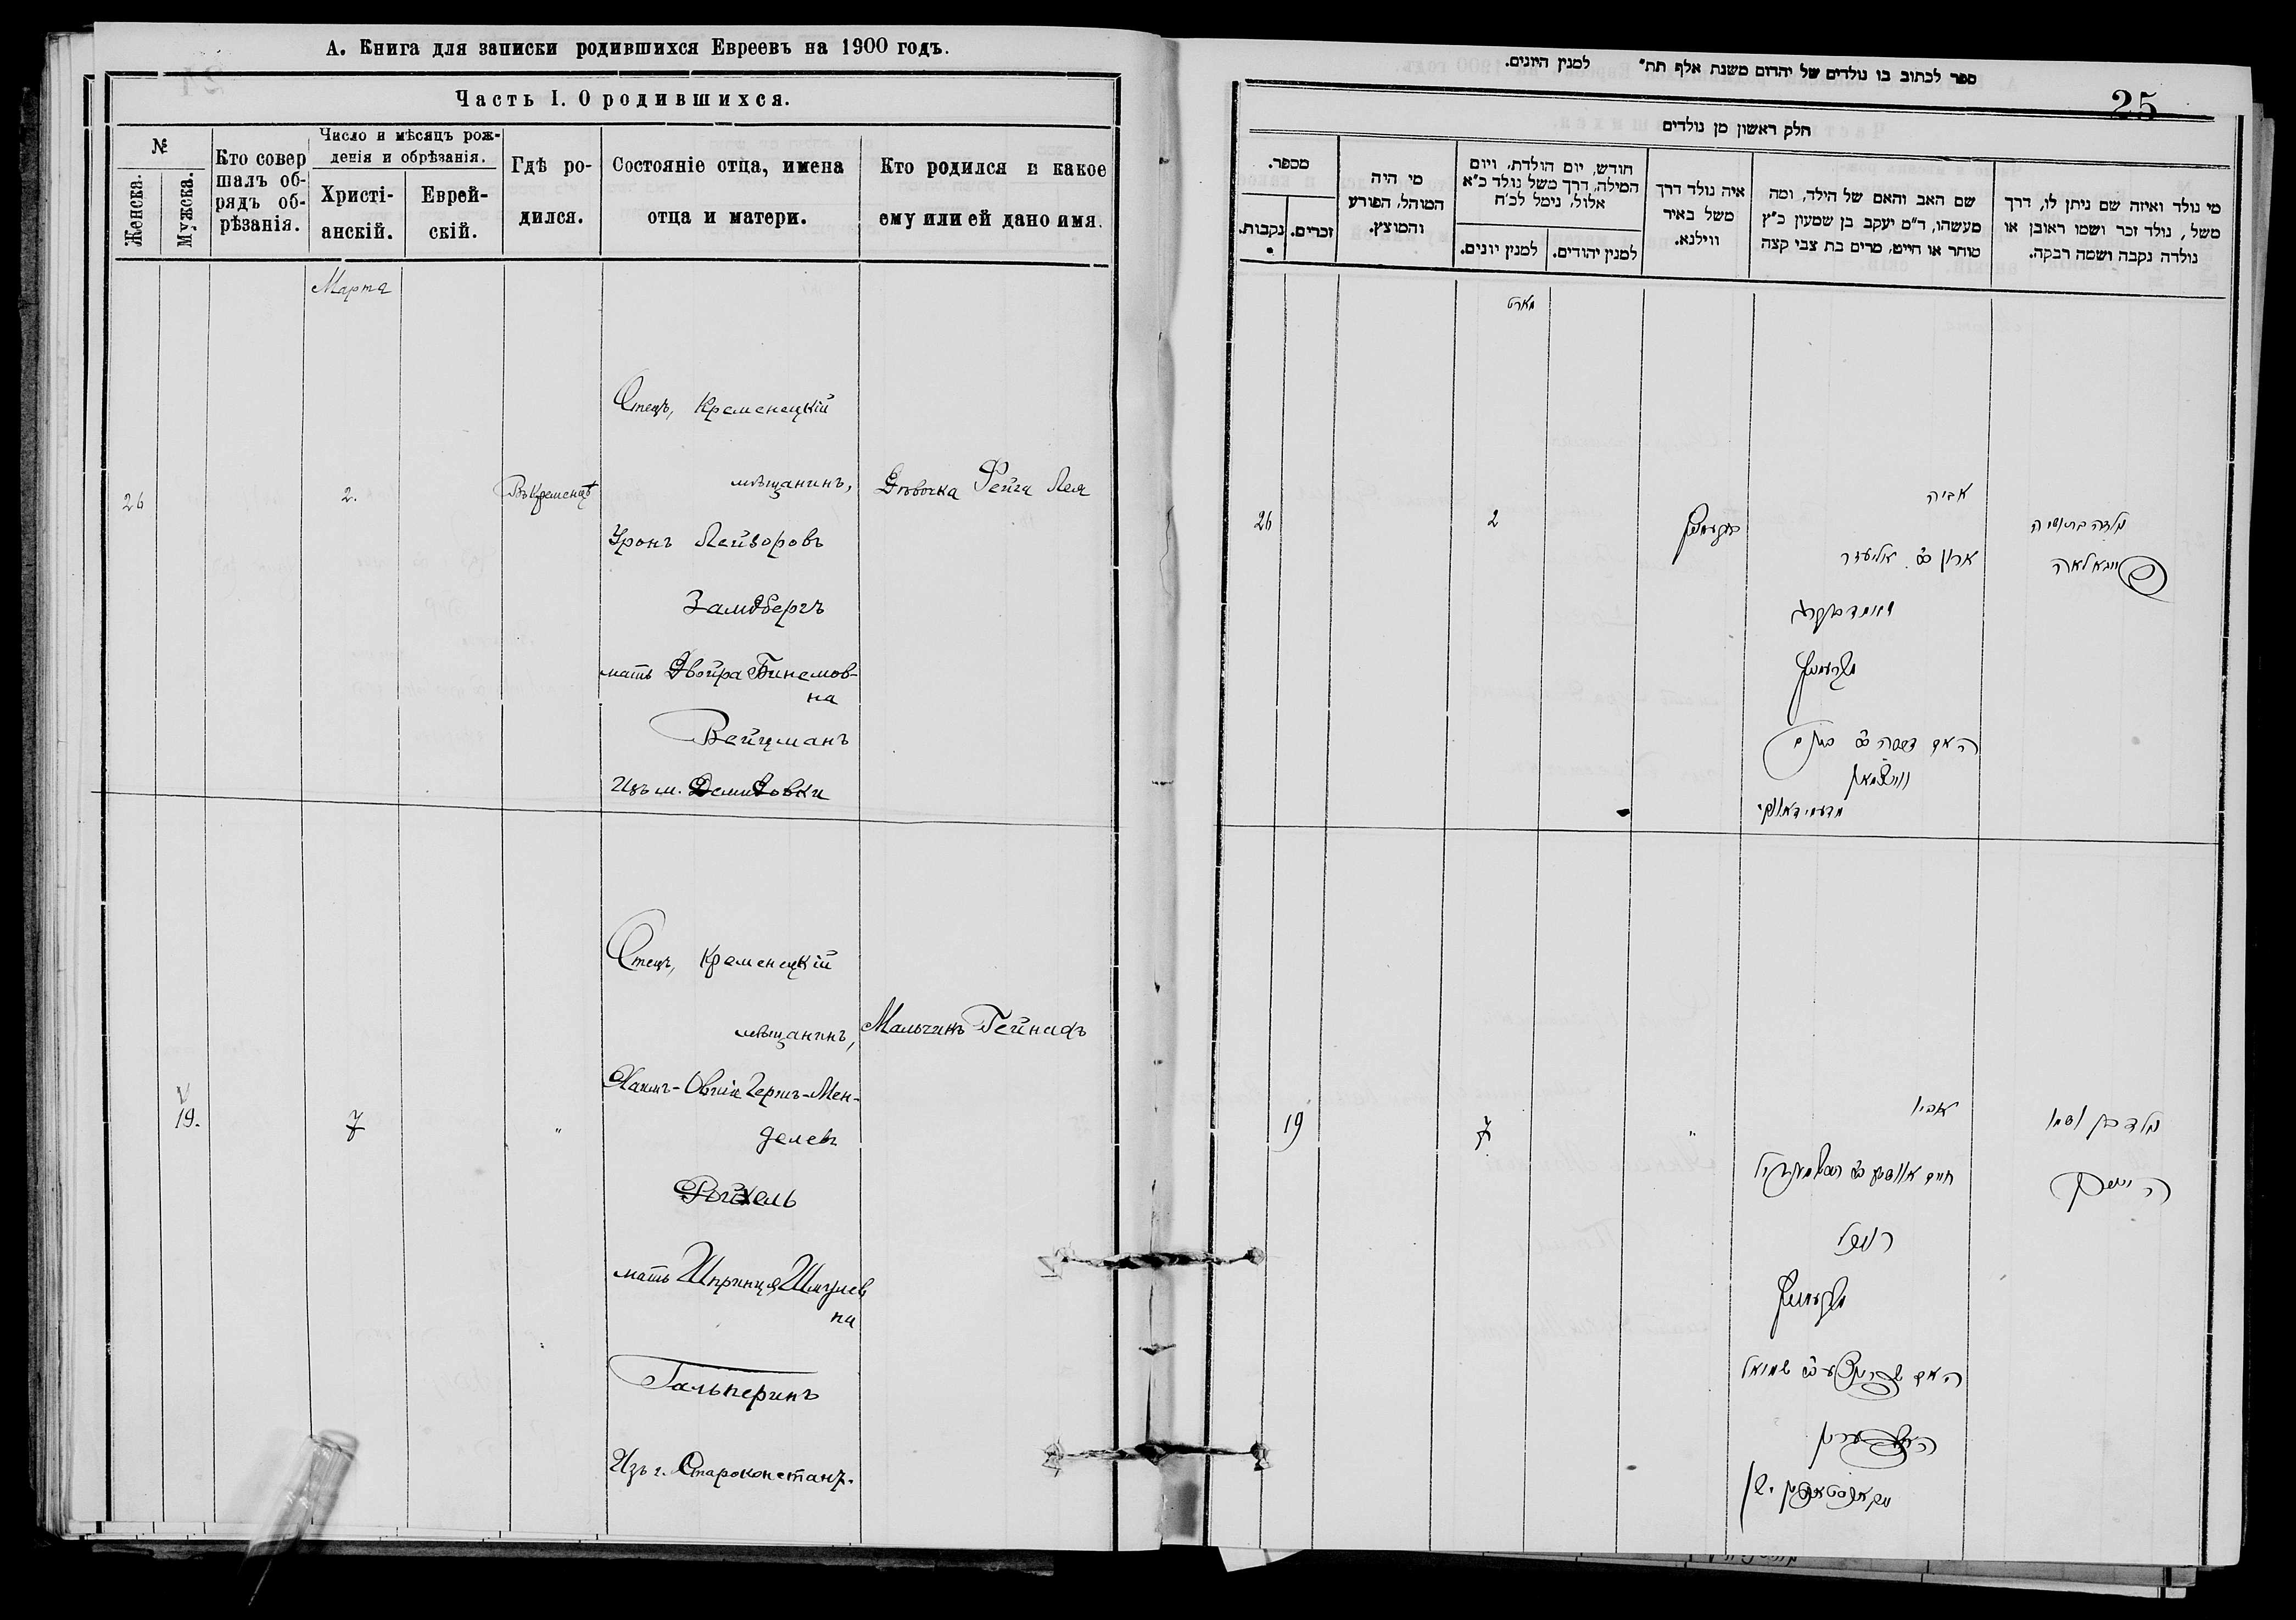 А. Книга для записки родившихся Евреевъ на 1900 годъ.
Часть I. О родившихся.
№
Женска.
Мужска.
Кто совер
шалъ об-
рядъ об-
рѣзанія.
Число и мѣсяцъ рож-
денія и обрѣзанія.
Христі-
анскій.
Еврей-
скій.
Гдѣ ро-
дился.
Состояніе отца, имена
отца и матери.
Кто родился и какое
ему или ей дано имя.
Марта
26
2.
Въ Кременцѣ
Отецъ, Кременецкій
мѣщанинъ,
Уронъ Лейзоровъ
Замдбергъ
мать Двойра Бинемов-
на
Вейцманъ
Изъ м. Демидовки
Дѣвочка Фейга Лея
19.
7
"
Отецъ, Кременецкій
мѣщанинъ,
Хаимъ-Овшія Герпъ-Мен-
делевъ
Ройхель
мать Шпринця Шмулев
на
Гальперинъ
Изъ г. Староконстант.
Мальчикъ
ספר לכתוב בו נולדים של יהדום משנת אלף תת״ למנין היונים.
25
חלק ראשון מן נולדים
מספר.
נקבות.
זכרים.
מי היה
המוהל, הפורע
והמוצץ.
חודש, יום הולדת, ויום
המילה, דרך משל נולד כ״א
אלול, נימל לכ״ח
למנין יונים.
למנין יהודים.
איה נולד דרך
משל באיר
ווילנא.
שם האב והאם של הילד, ומה
מעשהו, ד״מ יעקב בן שמעון כ״ץ
סוחר או חייט, מרים בת צבי קצה
מי נולד ואיזה שם ניתן לו, דרך
משל, נולד זכר ושמו ראובן או
נולדה נקבה ושמה רבקה.
מארט
26
2
בקרעמעניץ
אביה
ארון ב״ר אליעזר
זאמדבערג
מקרעמעניץ
האם דבורה ב״ר בונם
ווייצמאן
מדעמידאווקי
נולדה בת ושמה
פייגא לאה
19
7
"
אביו
מקרעמעניץ
האם שפרינצע ב״ר שמואל
האלפערין
נולד בן ושמו